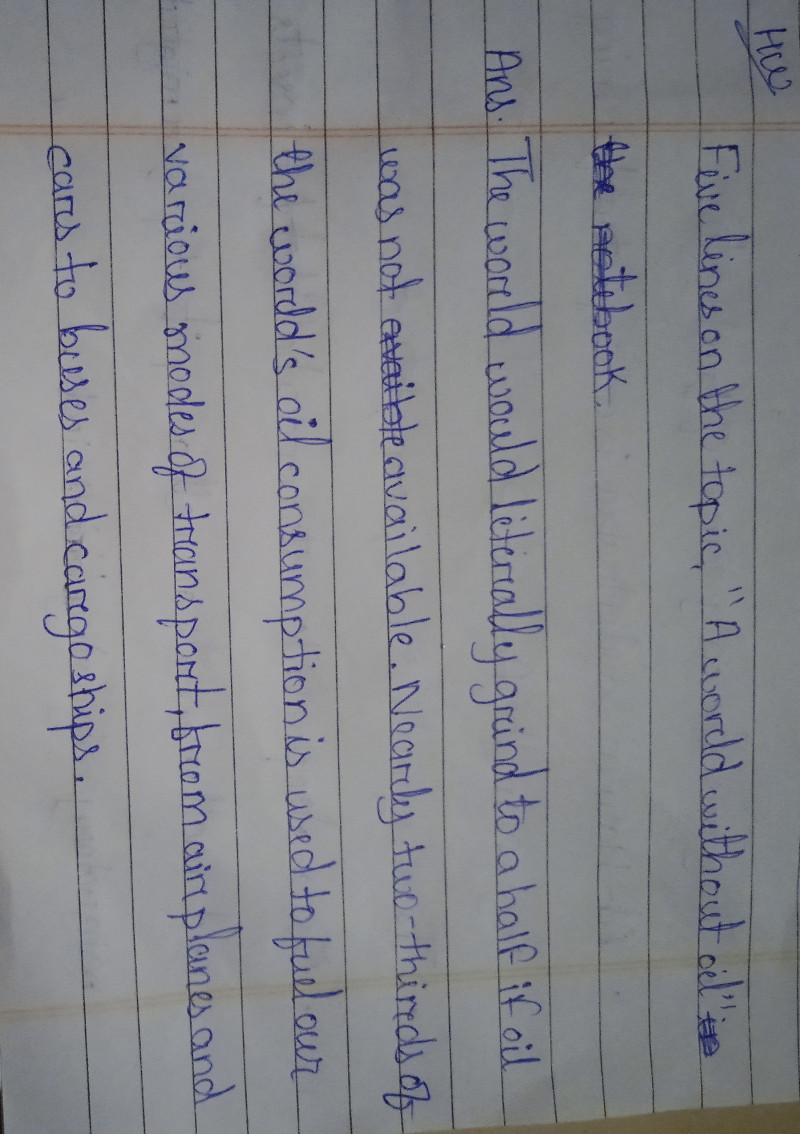 HW
Five lines on the topic, "A world without oil".
Ans. The world would literally grind to a half if oil
was not available. Nearly two-thirds of
the world's oil consumption is used to fuel our
various modes of transport, from airplanes and
cars to buses and cargo ships.